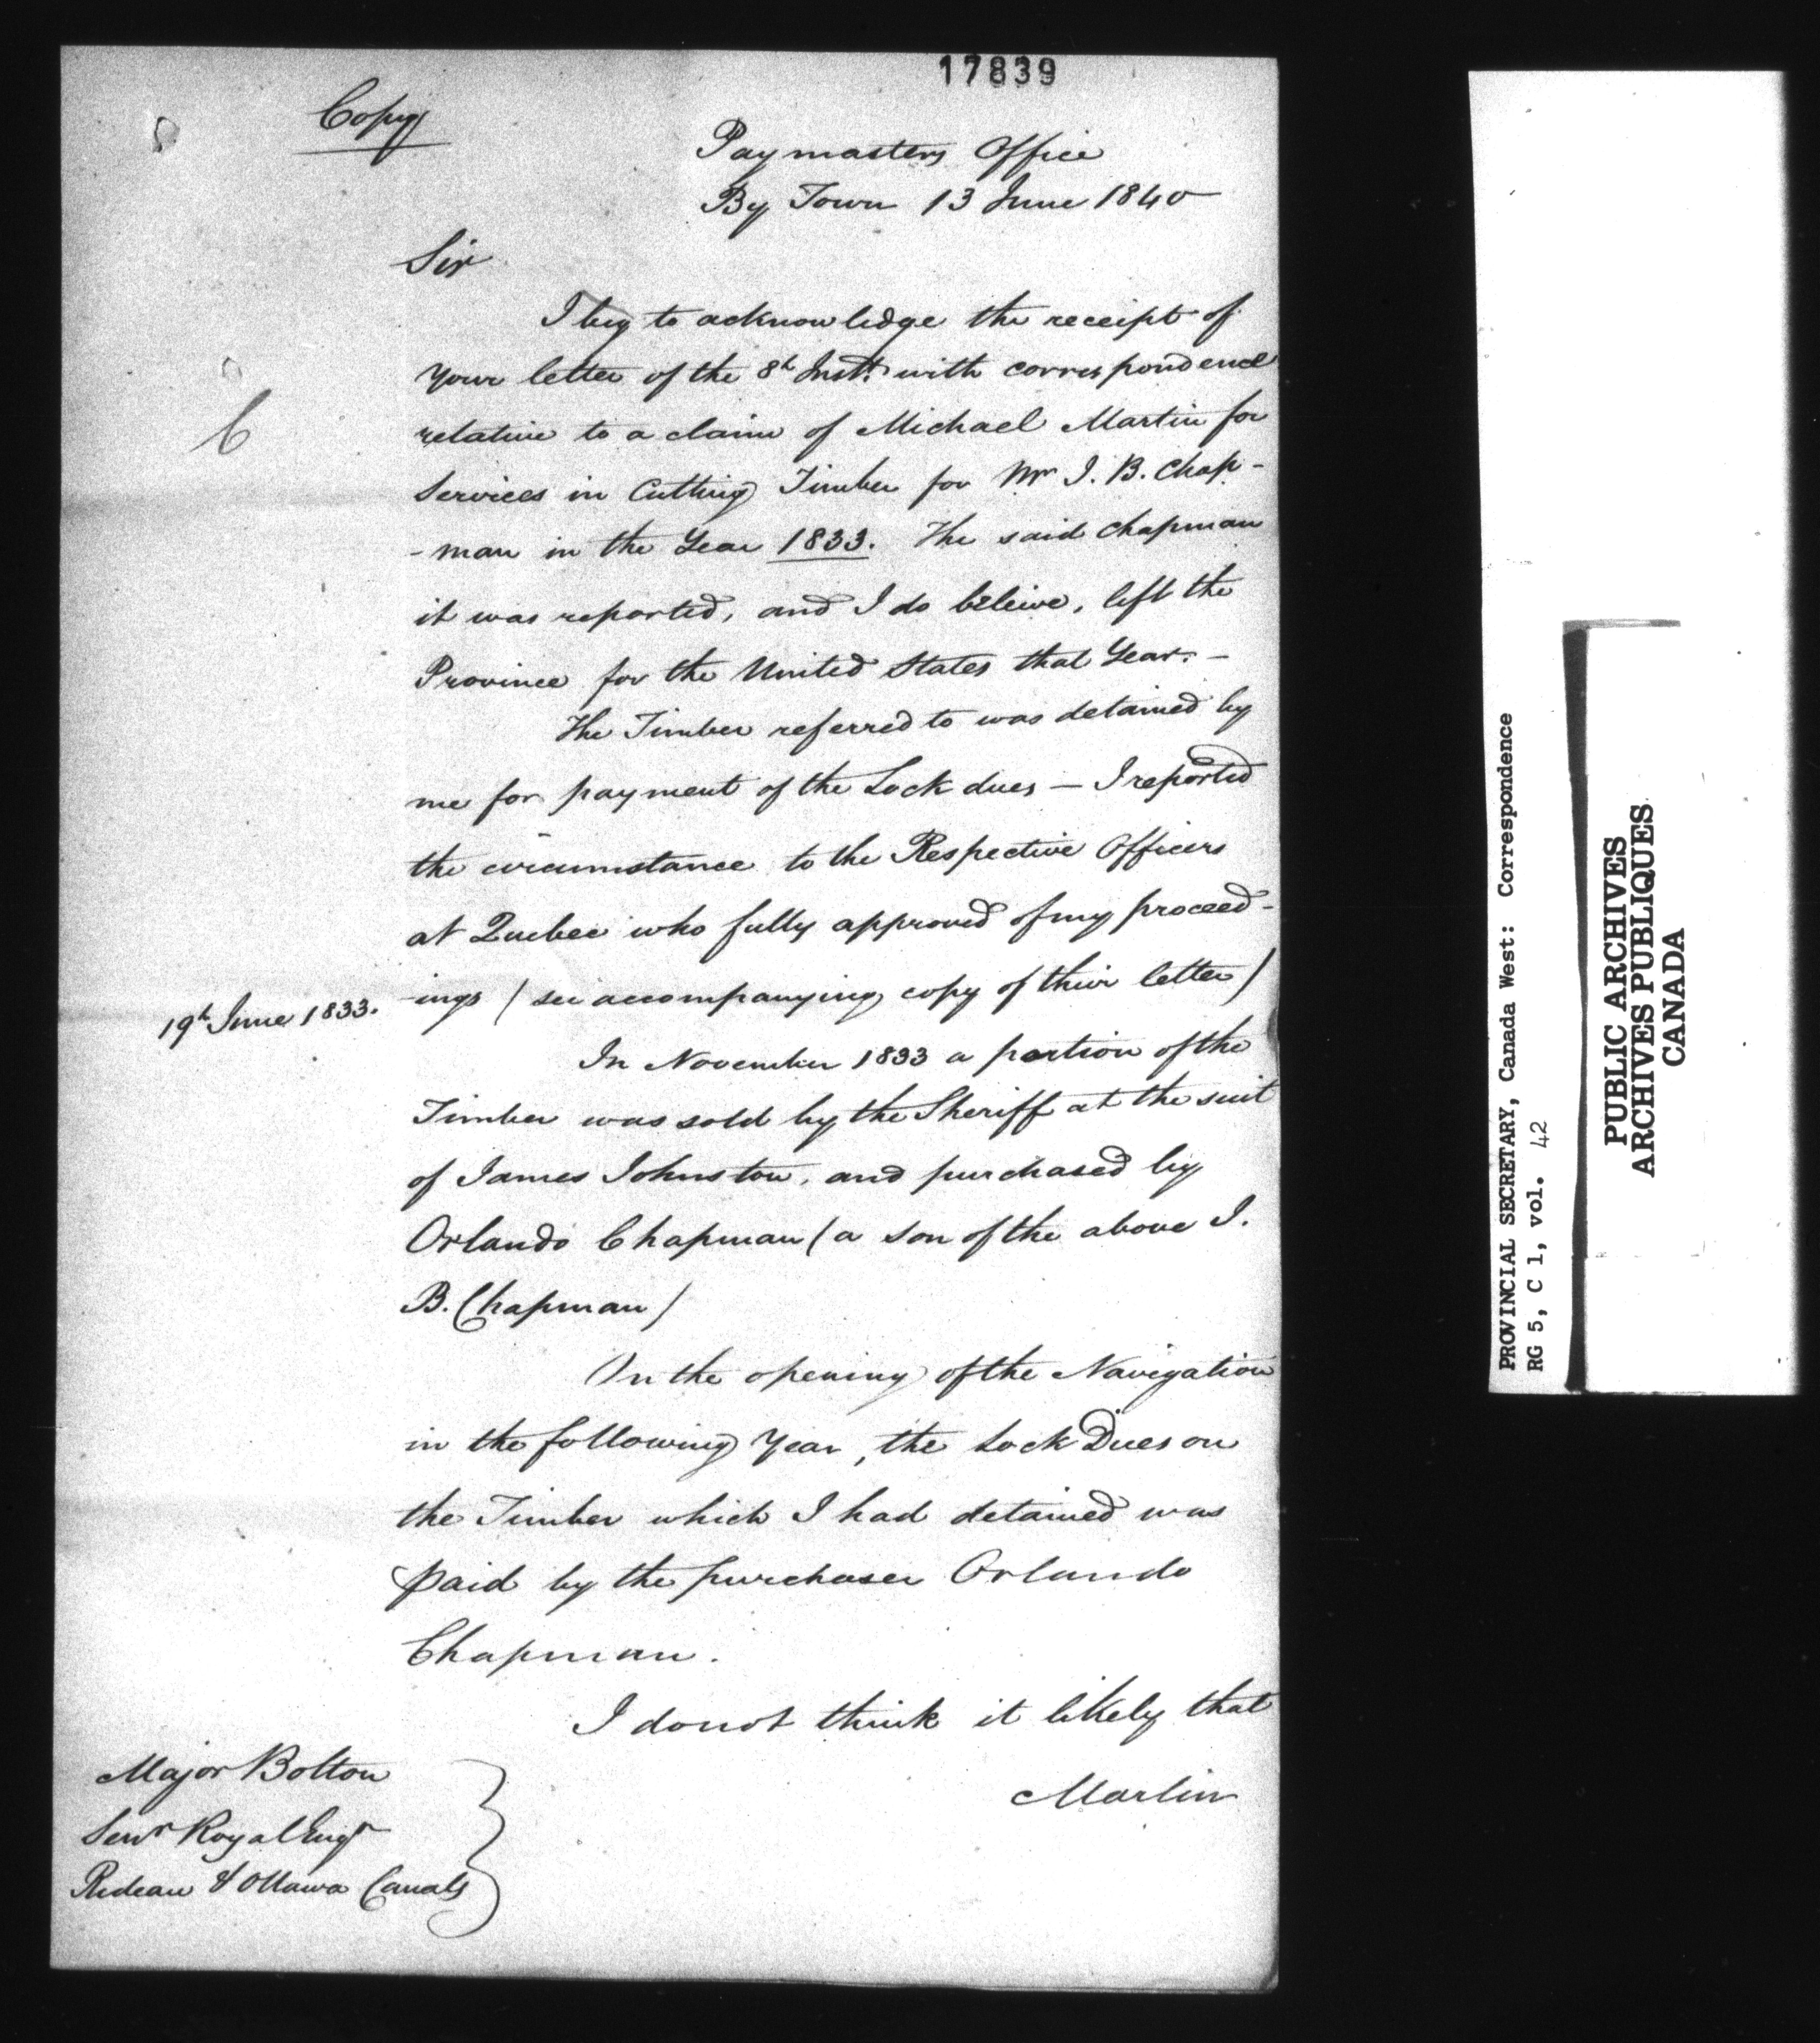 17839
Copy
Paymasters Office
By Town 13 June 1840
Sir
I beg to acknowledge the receipt of
your letter of the 8th Inst. with correspondence
relative to a claim of Michael Martin for
Services in Cutting Timber for Mr I. B. Chap-
-man in the Year 1833. The said Chapman
it was reported, and I do beleive, left the
Province for the United States that Year. -
The Timber referred to was detained by
me for payment of the Lock dues — I reported
the circumstance to the Respective Officers
at Quebec who fully approved of my proceed-
19th June 1833. -ings / see accompanying copy of their letter /
In November 1833 a portion of the
Timber was sold by the Sheriff at the suit
of James Johnston, and purchased by
Orlando Chapman / a son of the above I.
B. Chapman /
On the opening of the Navigation
in the following Year, the Lock Dues on
the Timber which I had detained was
paid by the purchaser Orlando
Chapman.
I do not think it likely that
Martin
Major Bolton
Senr Royal Engr
Rideau & Ottawa Canals
6
PROVINCIAL SECRETARY, Canada West: Correspondence
RG 5, C 1, vol. 42
PUBLIC ARCHIVES
ARCHIVES PUBLIQUES
CANADA